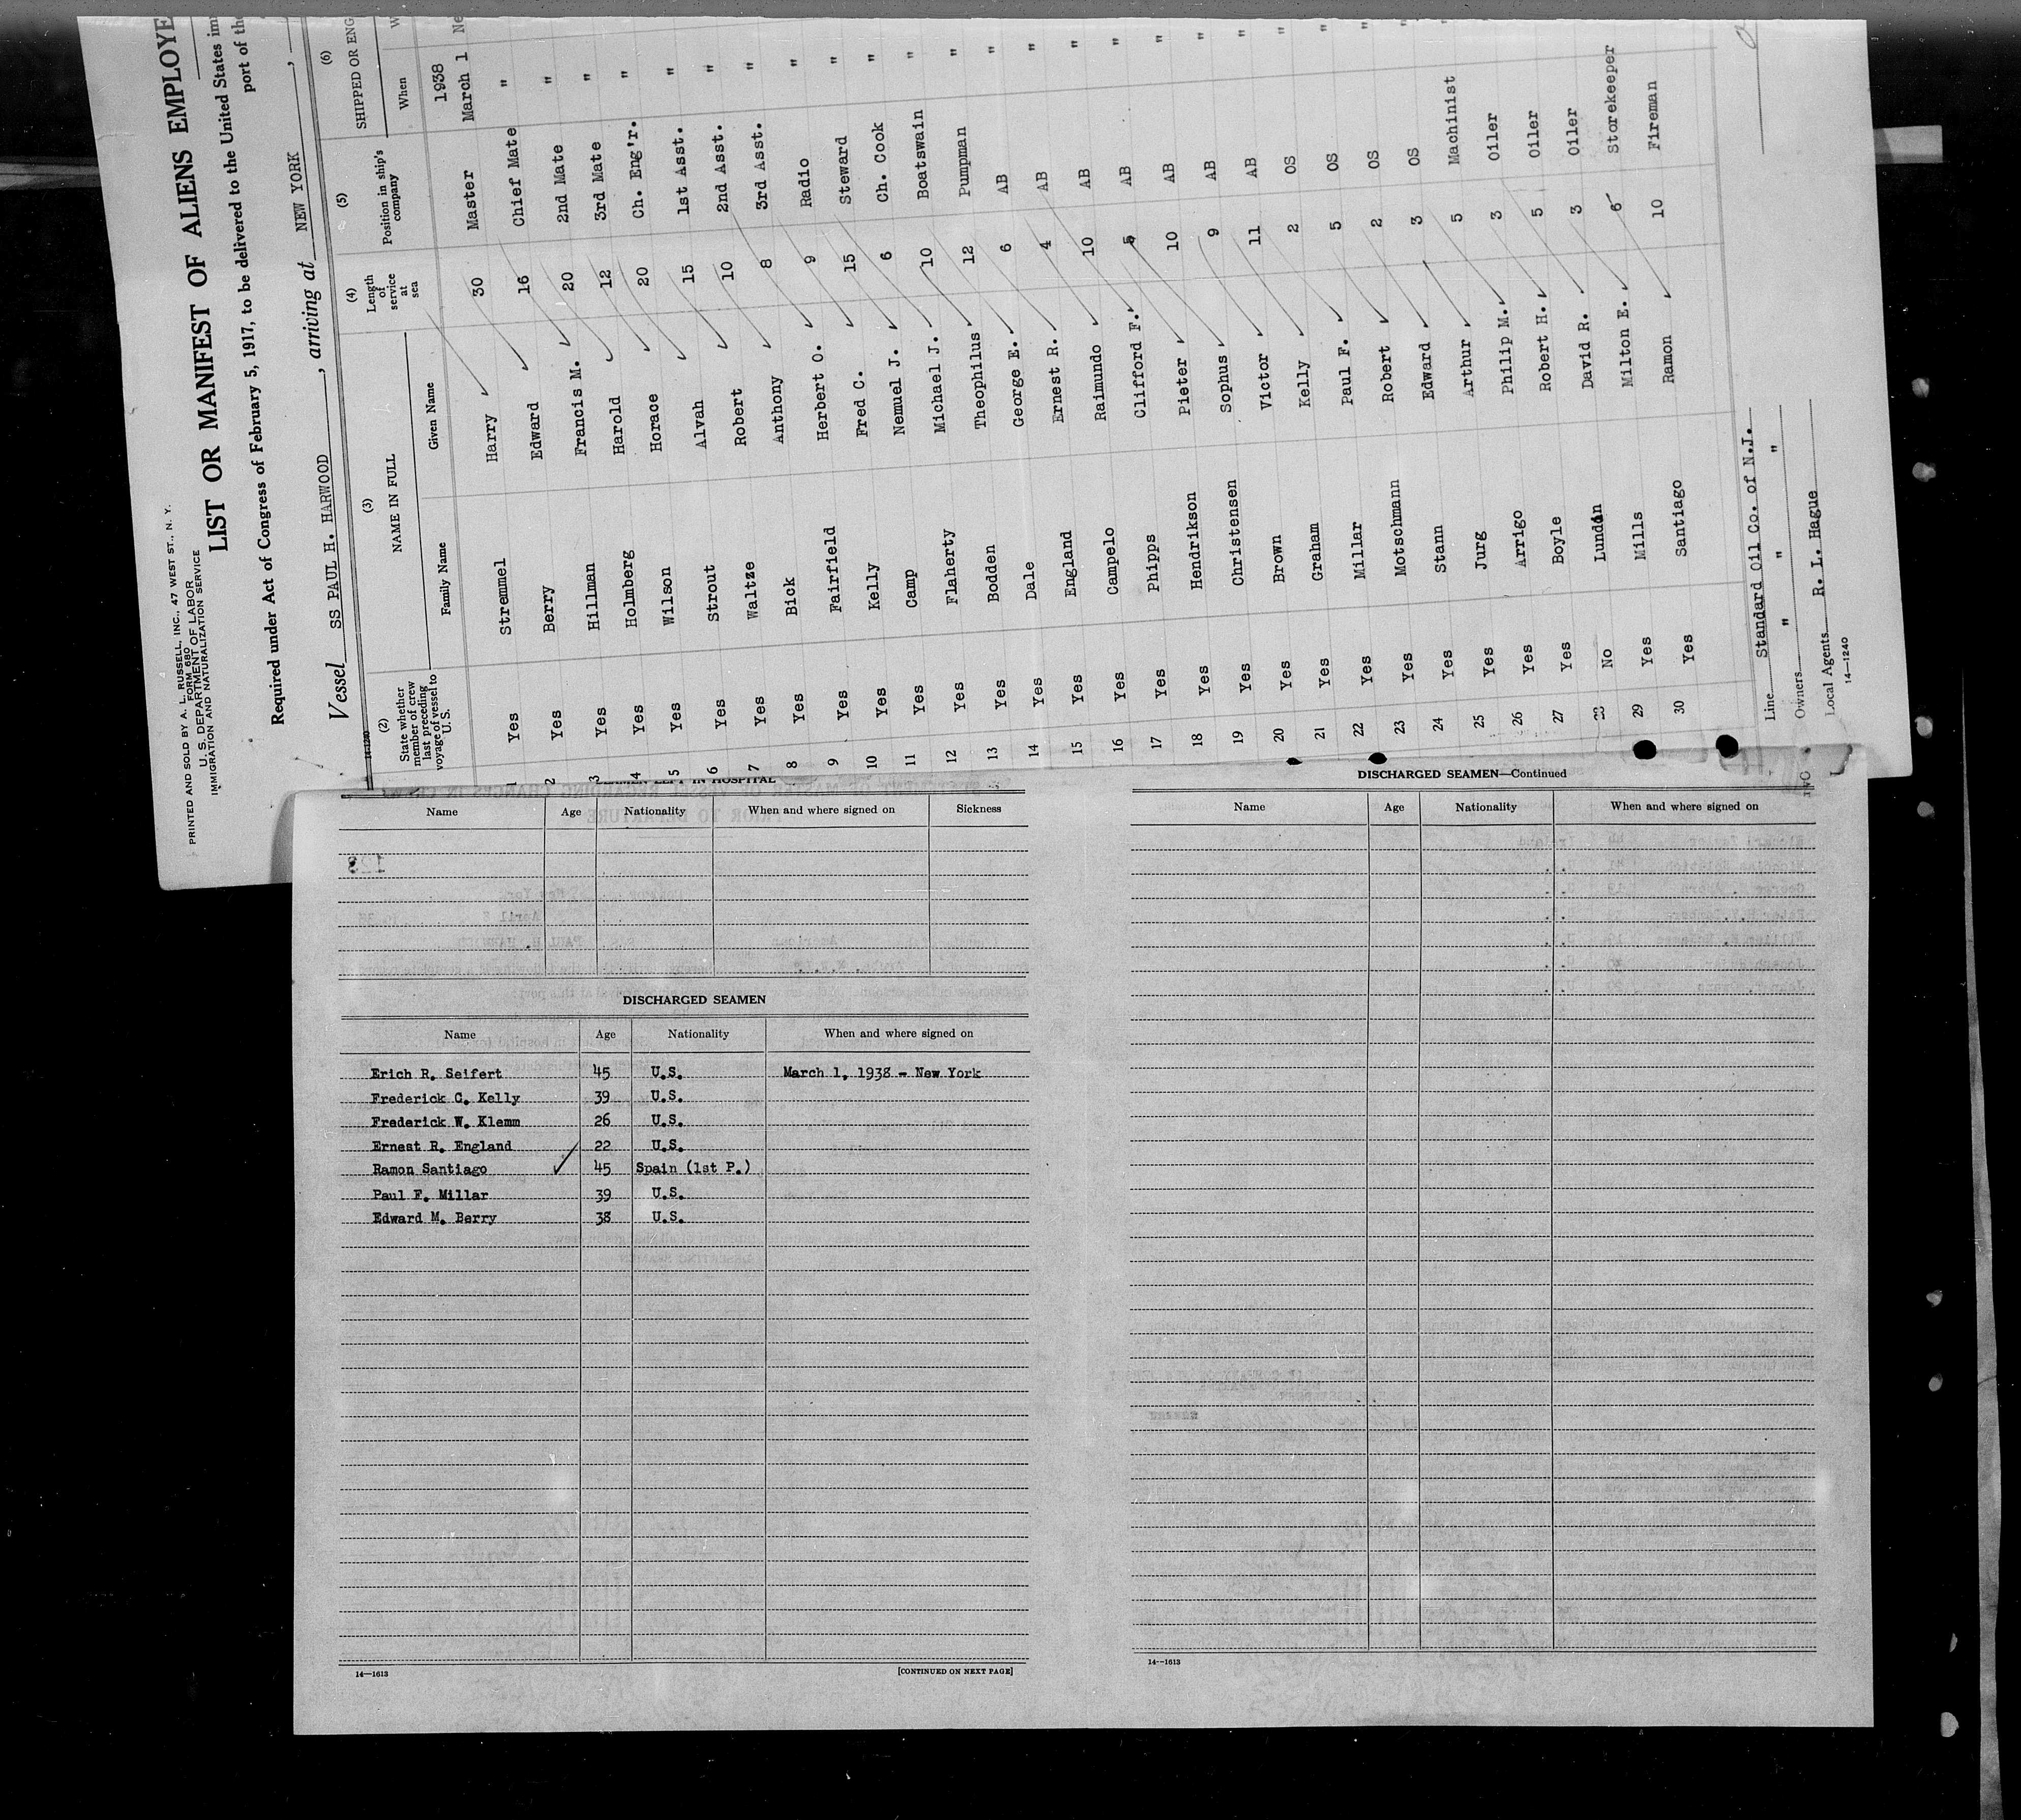 PRINTED AND SOLD BY A. L. RUSSELL, INC., 47 WEST ST., N. Y.
FORM 680
U. S. DEPARTMENT OF LABOR
IMMIGRATION AND NATURALIZATION SERVICE
LIST OR MANIFEST OF ALIENS EMPLOYE
Required under Act of Congress of February 5, 1917, to be delivered to the United States im
port of the
Vessel SS PAUL H. HARWOOD , arriving at NEW YORK ,
(2) (3) (4) (5) (6)
State whether member of crew last preceding voyage of vessel to U. S. NAME IN FULL Length of service at sea Position in ship's company SHIPPED OR ENG
Family Name Given Name When W
1938
1 Yes Stremmel Harry 30 Master March 1 Ne
2 Yes Berry Edward 16 Chief Mate " "
3 Yes Hillman Francis M. 20 2nd Mate " "
4 Yes Holmberg Harold 12 3rd Mate " "
5 Yes Wilson Horace 20 Ch. Eng'r. " "
6 Yes Strout Alvah 15 1st Asst. " "
7 Yes Waltze Robert 10 2nd Asst. " "
8 Yes Bick Anthony 8 3rd Asst. " "
9 Yes Fairfield Herbert O. 9 Radio " "
10 Yes Kelly Fred C. 15 Steward " "
11 Yes Camp Nemuel J. 6 Ch. Cook " "
12 Yes Flaherty Michael J. 10 Boatswain " "
13 Yes Bodden Theophilus 12 Pumpman " "
14 Yes Dale George E. 6 AB " "
15 Yes England Ernest R. 4 AB " "
16 Yes Campelo Raimundo 10 AB " "
17 Yes Phipps Clifford F. 5 AB " "
18 Yes Hendrikson Pieter 10 AB " "
19 Yes Christensen Sophus 9 AB " "
20 Yes Brown Victor 11 AB " "
21 Yes Graham Kelly 2 OS "
22 Yes Millar Paul F. 5 OS "
23 Yes Motschmann Robert 2 OS "
24 Yes Stann Edward 3 OS "
25 Yes Jurg Arthur 5 Machinist "
26 Yes Arrigo Philip M. 3 Oiler
27 Yes Boyle Robert H. 5 Oiler
28 No Lundin David R. 3 Oiler
29 Yes Mills Milton E. 6 Storekeeper
30 Yes Santiago Ramon 10 Fireman
Line Standard Oil Co. of N.J.
Owners " " " "
Local Agents R. L. Hague
14—1240
SEAMEN LEFT IN HOSPITAL
Name Age Nationality When and where signed on Sickness
DISCHARGED SEAMEN
Name Age Nationality When and where signed on
Erich R. Seifert 45 U.S. March 1, 1938 - New York
Frederick C. Kelly 39 U.S.
Frederick W. Klemm 26 U.S.
Ernest R. England 22 U.S.
Ramon Santiago 45 Spain (1st P.)
Paul F. Millar 39 U.S.
Edward M. Berry 38 U.S.
14—1613
[CONTINUED ON NEXT PAGE]
DISCHARGED SEAMEN—Continued
Name Age Nationality When and where signed on
14—1613